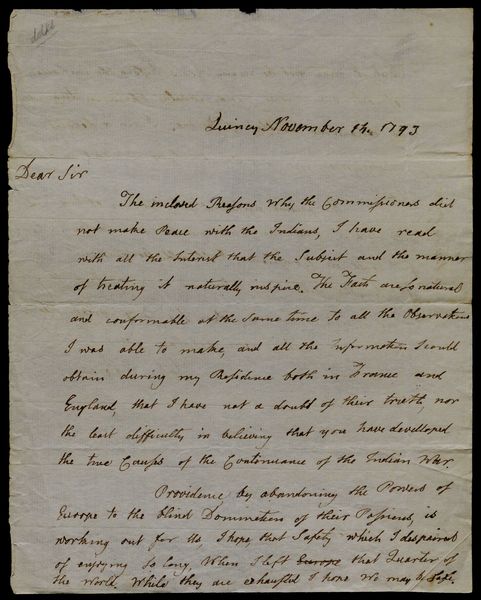 Quincy November 14. 1793
Dear Sir
The inclosed Reasons why the Commissioners did
not make Peace with the Indians, I have read
with all the Interest that the Subject and the manner
of treating it naturally inspire. The Facts are so natural
and conformable at the same time to all the Observations
I was able to make, and all the Information I could
obtain during my Residence both in France and
England, that I have not a doubt of their truth, nor
the least difficulty in believing that you have developed
the true Causes of the Continuance of the Indian War.
Providence by abandoning the Powers of
Europe to the blind Domination of their Passions, is
working out for Us, I hope, that Safety which I despaired
of enjoying so long, When I left Europe that Quarter of
the World. While they are exhausted I hope We may be safe.